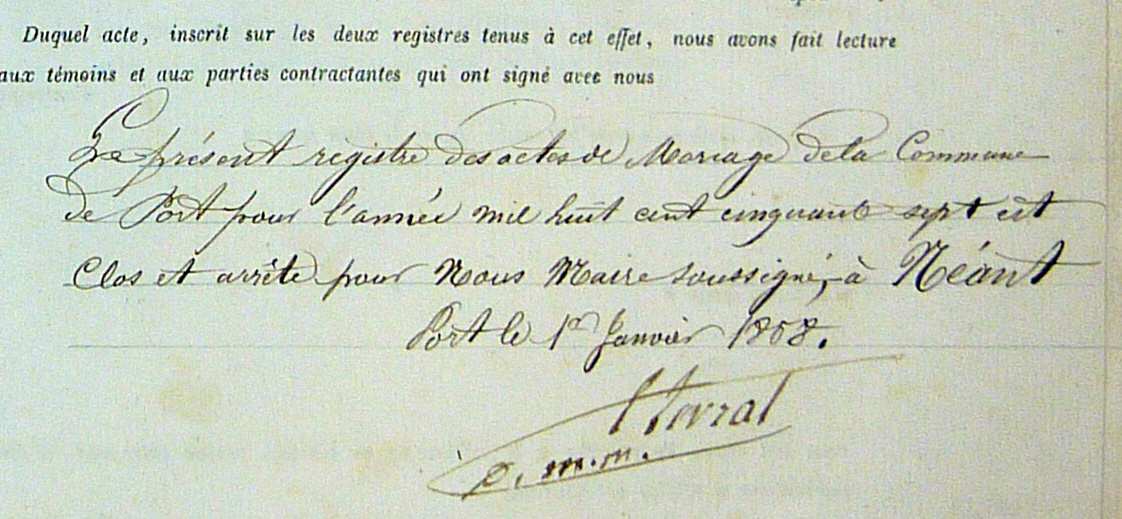 Duquel acte, inscrit sur les deux registres tenus à cet effet, nous avons fait lecture
aux témoins et aux parties contractantes qui ont signé avec nous
Le présent registre des actes de Mariage de la Commune
de Port pour l'année mil huit cent cinquante sept est
Clos et arrêté pour Nous Maire soussigné, à Néant
Port le 1er Janvier 1858.
m.m.